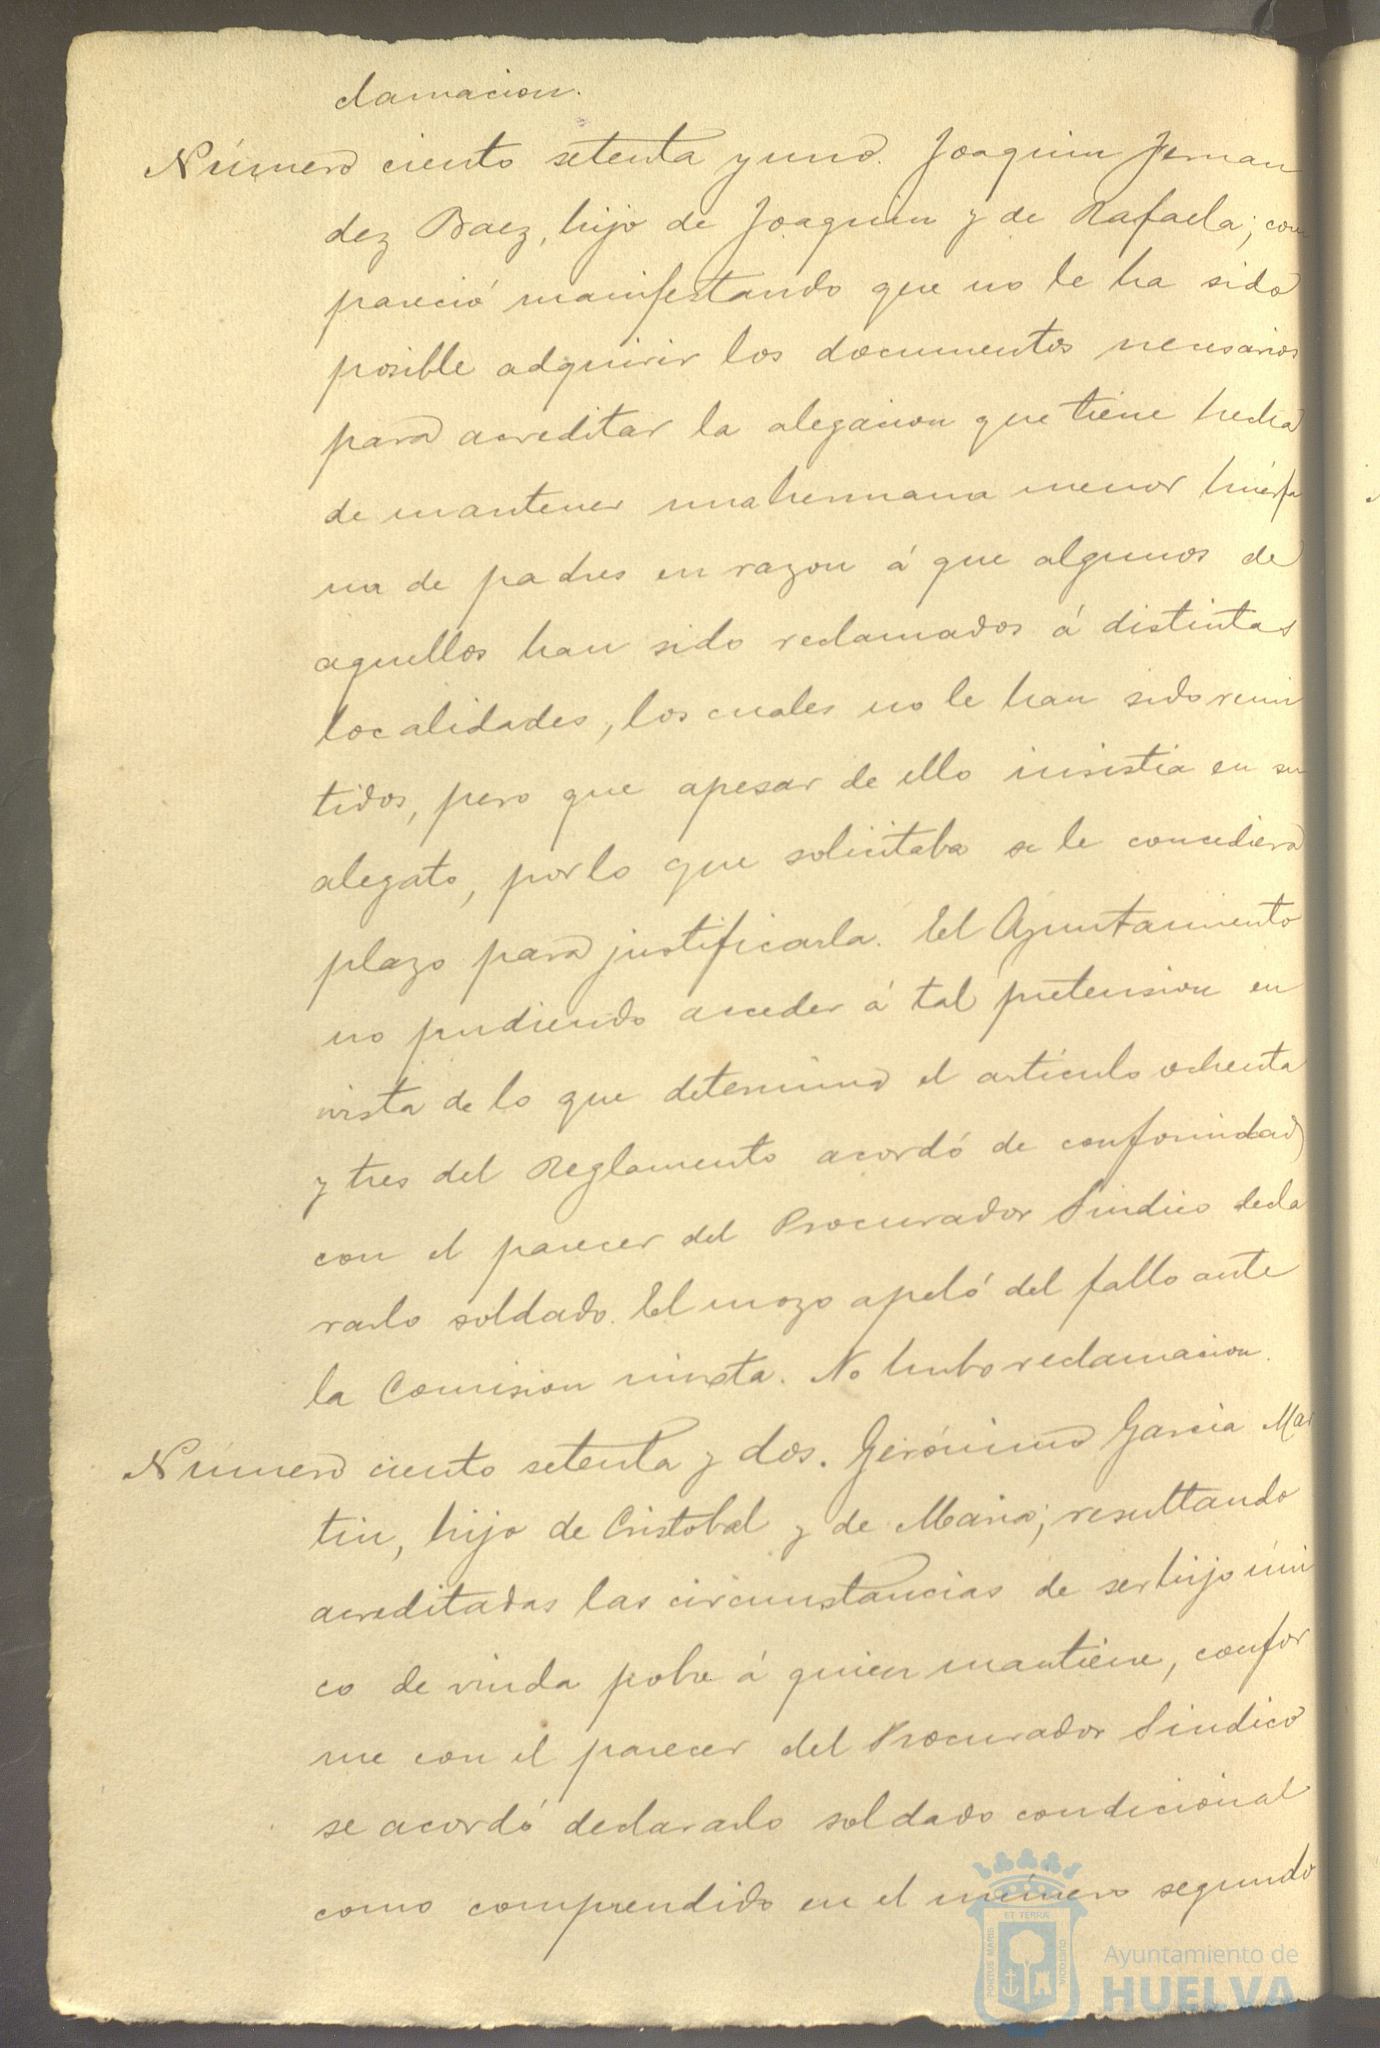 clamacion.
Número ciento setenta y uno. Joaquin Fernan
dez Baez, hijo de Joaquin y de Rafaela; com
pareció manifestando que no le ha sido
posible adquirir los documentos necesarios
para acreditar la alegacion que tiene hecha
de mantener una hermana menor huérfa
na de padres en razon á que algunos de
aquellos han sido reclamados á distintas
localidades, los cuales no le han sido remi
tidos, pero que apesar de ello insistia en su
alegato, por lo que solicitaba se le concediera
plazo para justificarla. El Ayuntamiento
no pudiendo acceder á tal pretension en
vista de lo que determina el artículo ochenta
y tres del Reglamento acordó de conformidad
con el parecer del Procurador Sindico decla
rarlo soldado. El mozo apeló del fallo ante
la Comision mixta. No hubo reclamacion.
Número ciento setenta y dos. Gerónimo Garcia Mar
tin, hijo de Cristobal y de Maria; resultando
acreditadas las circunstancias de ser hijo úni
co de viuda pobre á quien mantiene, confor
me con el parecer del Procurador Sindico
se acordó declararlo soldado condicional
como comprendido en el número segundo
PORTUS MARIS ET TERRÆ CUSTODIA
Ayuntamiento de
HUELVA